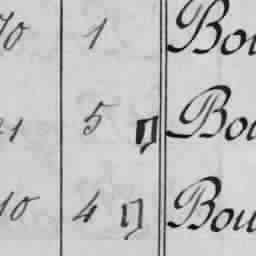 70 1 Bou
21 5 Bou
10 4 Bou